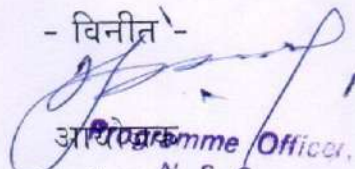 - विनीत -
आयोजक
Programme Officer,